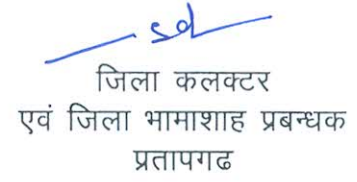 जिला कलक्टर
एवं जिला भामाशाह प्रबन्धक
प्रतापगढ